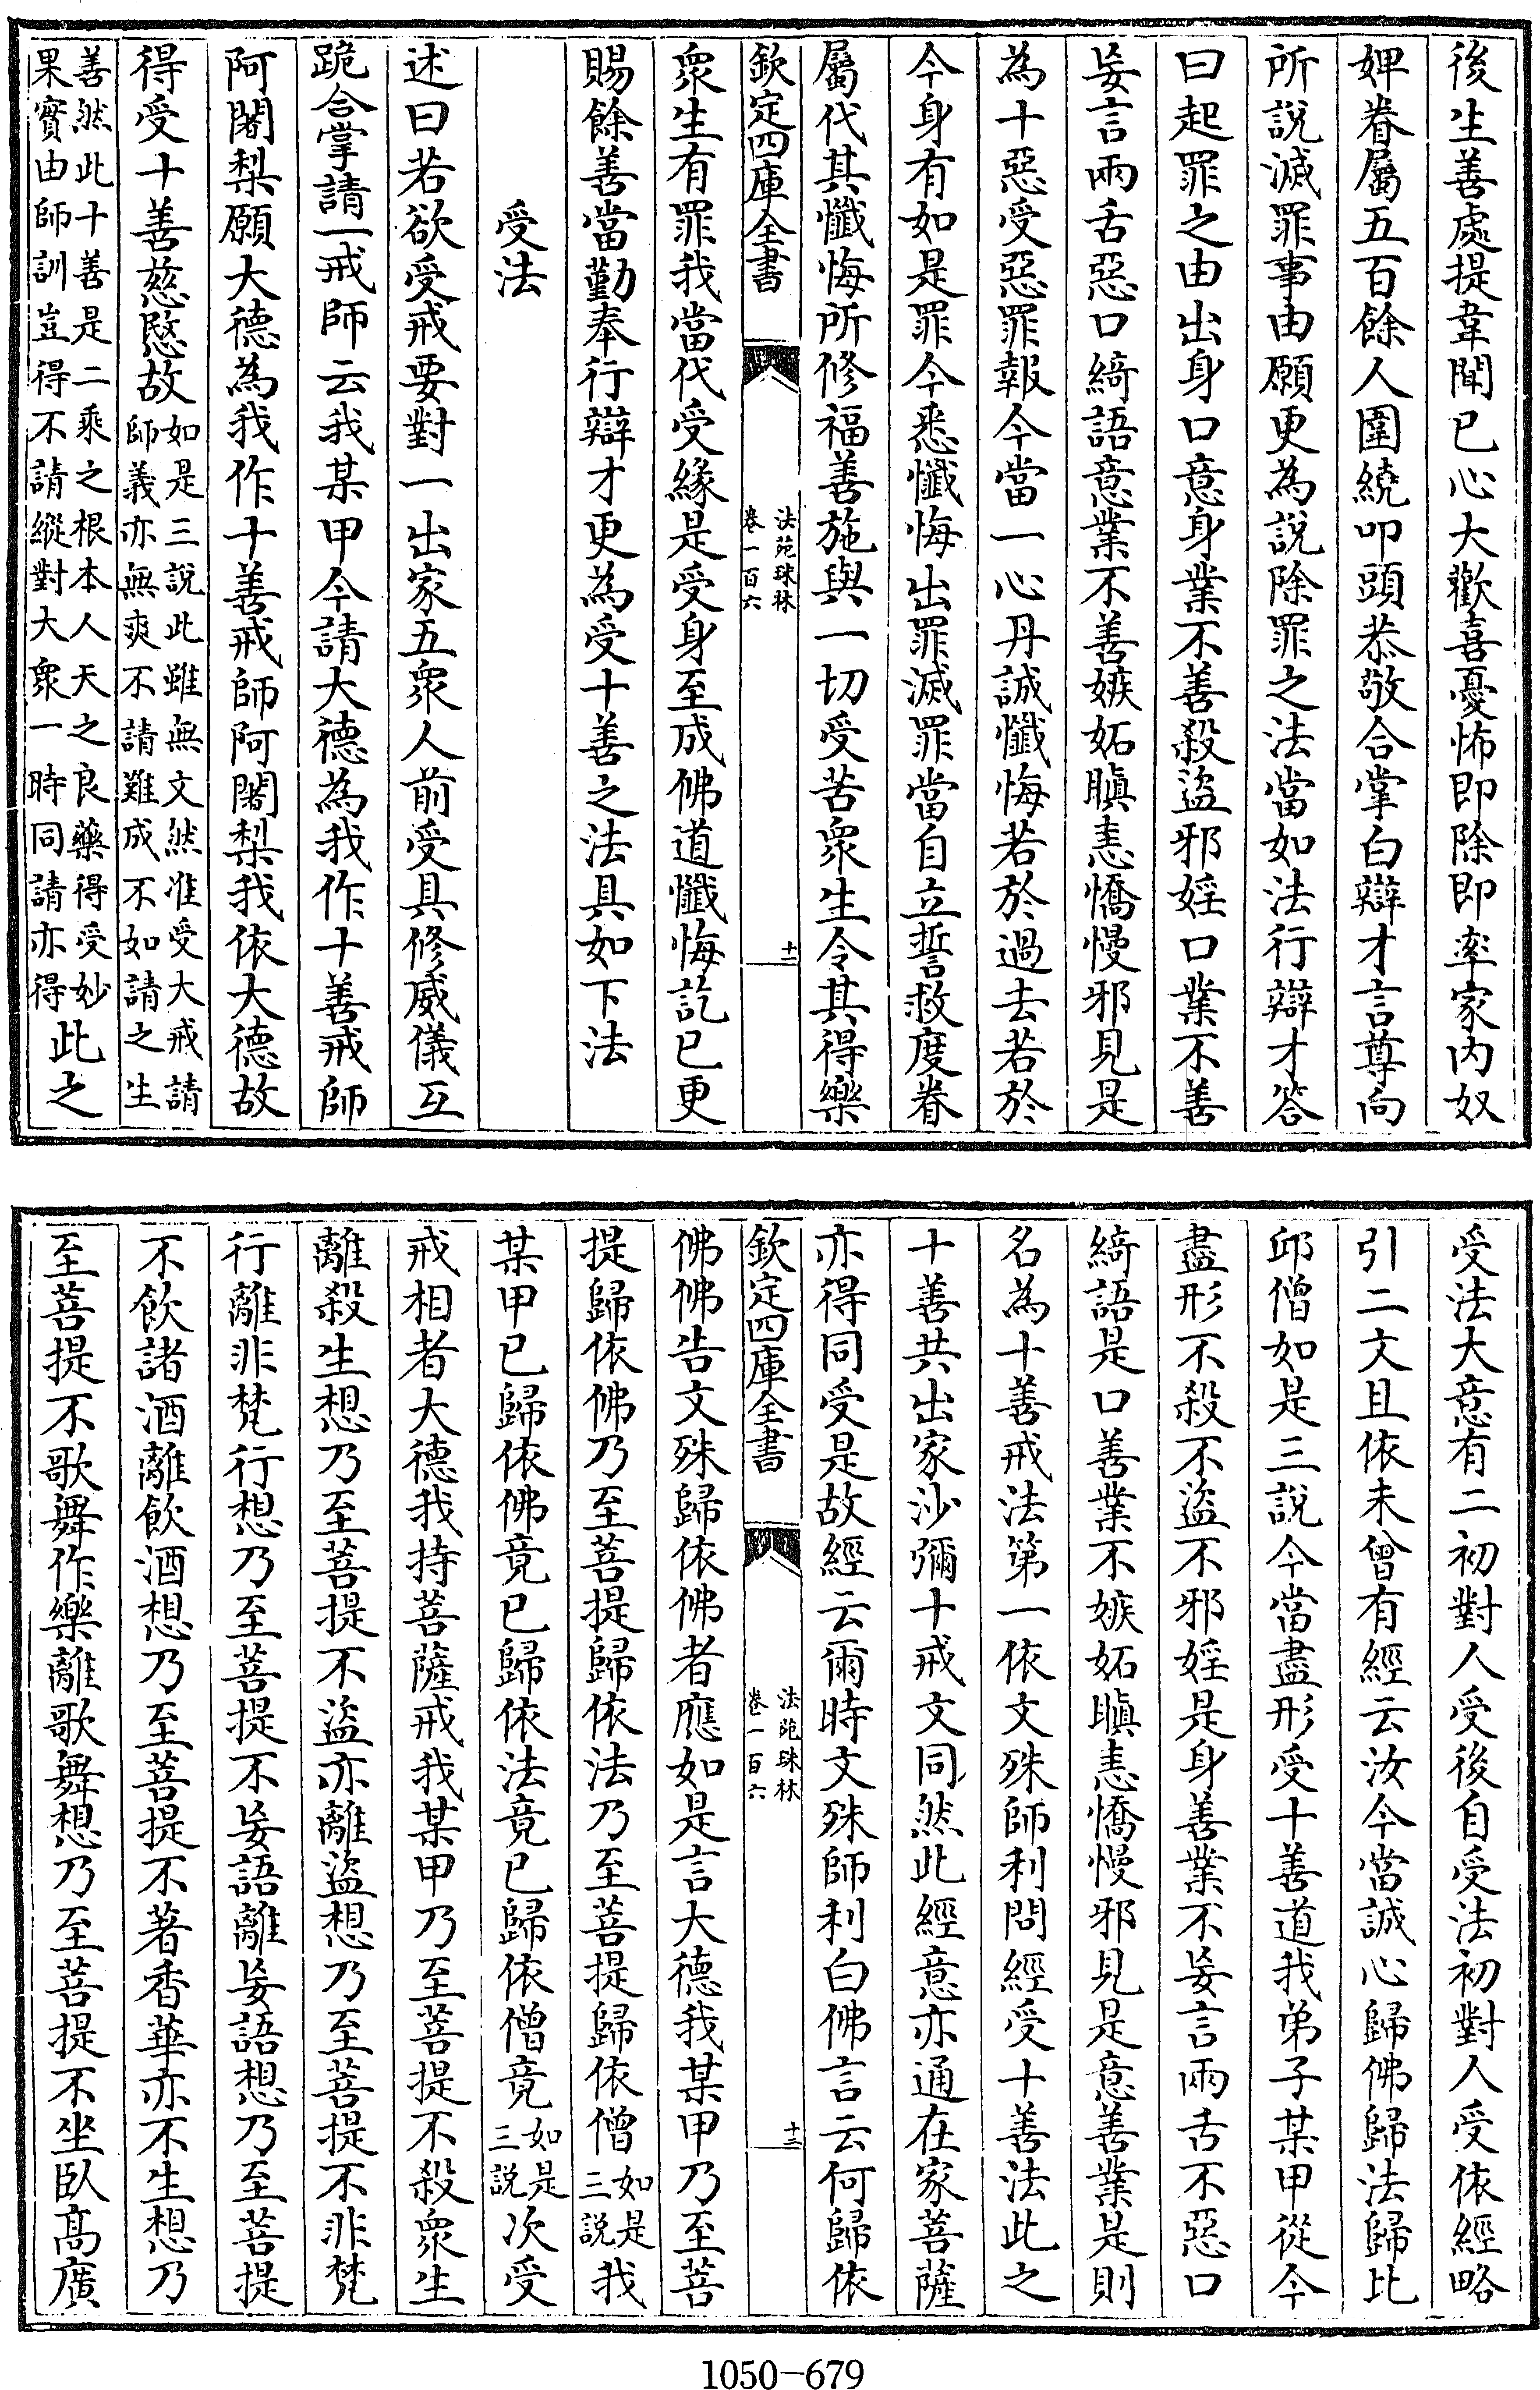 後生善處提韋聞已心大歡喜憂怖即除即率家内奴
婢眷屬五百餘人圍繞叩頭恭敬合掌白辯才言尊向
所說滅罪事由願更為說除罪之法當如法行辯才答
曰起罪之由出身口意身業不善殺盜邪婬口業不善
妄言兩舌惡口綺語意業不善嫉妬瞋恚憍慢邪見是
為十惡受惡罪報今當一心丹誠懺悔若於過去若於
今身有如是罪今悉懺悔出罪滅罪當自立誓救度眷
屬代其懺悔所修福善施與一切受苦衆生令其得樂
欽定四庫全書
法苑珠林
卷一百六
十二
衆生有罪我當代受緣是受身至成佛道懺悔訖已更
賜餘善當勤奉行辯才更為受十善之法具如下法
受法
述曰若欲受戒要對一出家五衆人前受具修威儀互
跪合掌請一戒師云我某甲今請大德為我作十善戒師
阿闍梨願大德為我作十善戒師阿闍梨我依大德故
得受十善慈愍故如是三說此雖無文然准受大戒請
師義亦無爽不請難成不如請之生
善然此十善是二乘之根本人天之良藥得受妙
果實由師訓豈得不請縱對大衆一時同請亦得此之
受法大意有二初對人受後自受法初對人受依經略
引二文且依未曾有經云汝今當誠心歸佛歸法歸比
邱僧如是三說今當盡形受十善道我弟子某甲從今
盡形不殺不盜不邪婬是身善業不妄言兩舌不惡口
綺語是口善業不嫉妬瞋恚憍慢邪見是意善業是則
名為十善戒法第一依文殊師利問經受十善法此之
十善共出家沙彌十戒文同然此經意亦通在家菩薩
亦得同受是故經云爾時文殊師利白佛言云何歸依
欽定四庫全書
法苑珠林
卷一百六
十三
佛佛告文殊歸依佛者應如是言大德我某甲乃至菩
提歸依佛乃至菩提歸依法乃至菩提歸依僧如是三說我
某甲已歸依佛竟已歸依法竟已歸依僧竟如是三說次受
戒相者大德我持菩薩戒我某甲乃至菩提不殺衆生
離殺生想乃至菩提不盜亦離盜想乃至菩提不非梵
行離非梵行想乃至菩提不妄語離妄語想乃至菩提
不飲諸酒離飲酒想乃至菩提不著香華亦不生想乃
至菩提不歌舞作樂離歌舞想乃至菩提不坐臥高廣
1050-679